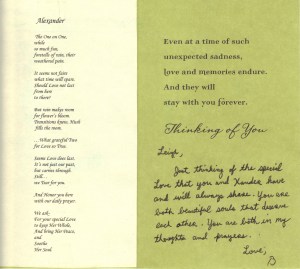 Alexander
The One on One,
while
so much fun,
foretells of rain, their
weathered pain.
It seems not faint
what time will spare,
Should Love not last
from here
to there?
But rain makes room
for flower's bloom.
Transitions knew. Musk
fills the room.
... What grateful Two
for Love so True.
Seems Love does last.
It's not just our past,
but carries through
still...
we Two for You.
And Honor you here
with our daily prayer.
We ask;
For your special Love
to keep Her Whole,
And bring Her Peace,
and
Soothe
Her Soul.
Even at a time of such
unexpected sadness,
love and memories endure.
And they will
stay with you forever.
Thinking of You
Leigh,
Just thinking of the special
Love that you and Xander have
and will always share. You are
both beutiful souls that deserve
each other. You are both in my
thoughts and prayers.
Love,
B